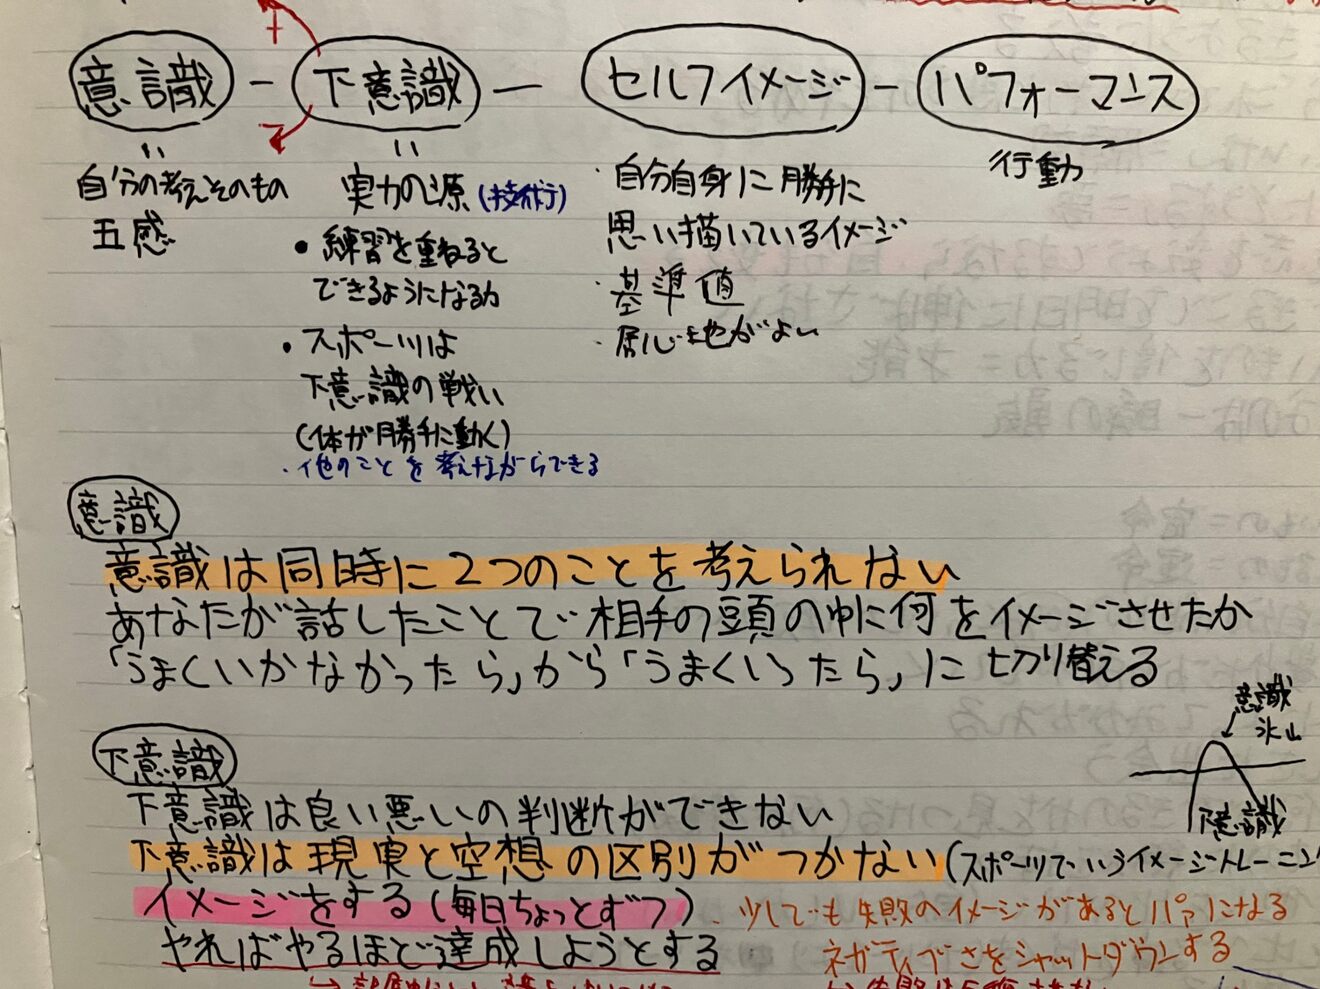 意識 - 下意識 - セルフイメージ - パフォーマンス
+
-
=
自分の考えそのもの
五感
=
実力の源(技術)
・練習を重ねると
できるようになる力
・スポーツは
下意識の戦い
(体が勝手に動く)
・他のことを考えながらできる
・自分自身に勝手に
思い描いているイメージ
・基準値
・居心地がよい
行動
意識
意識は同時に2つのことを考えられない
あなたが話したことで相手の頭の中に何をイメージさせたか
「うまくいかなかったら」から「うまくいったら」に切り替える
意識
氷山
下意識
下意識
下意識は良い悪いの判断ができない
下意識は現実と空想の区別がつかない(スポーツでいうイメージトレーニング
イメージをする(毎日ちょっとずつ)
・少しでも失敗のイメージがあるとパァになる
やればやるほど達成しようとする
ネガティブさをシャットダウンする